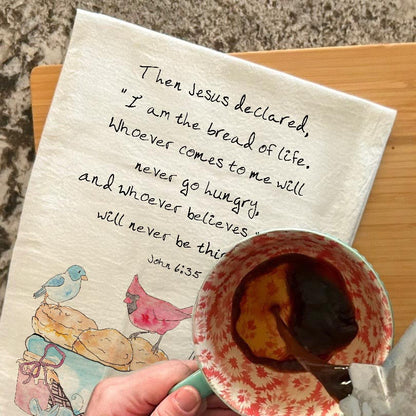 Then Jesus declared,
"I am the bread of life.
Whoever comes to me will
never go hungry,
and whoever believes
will never be
John 6:35